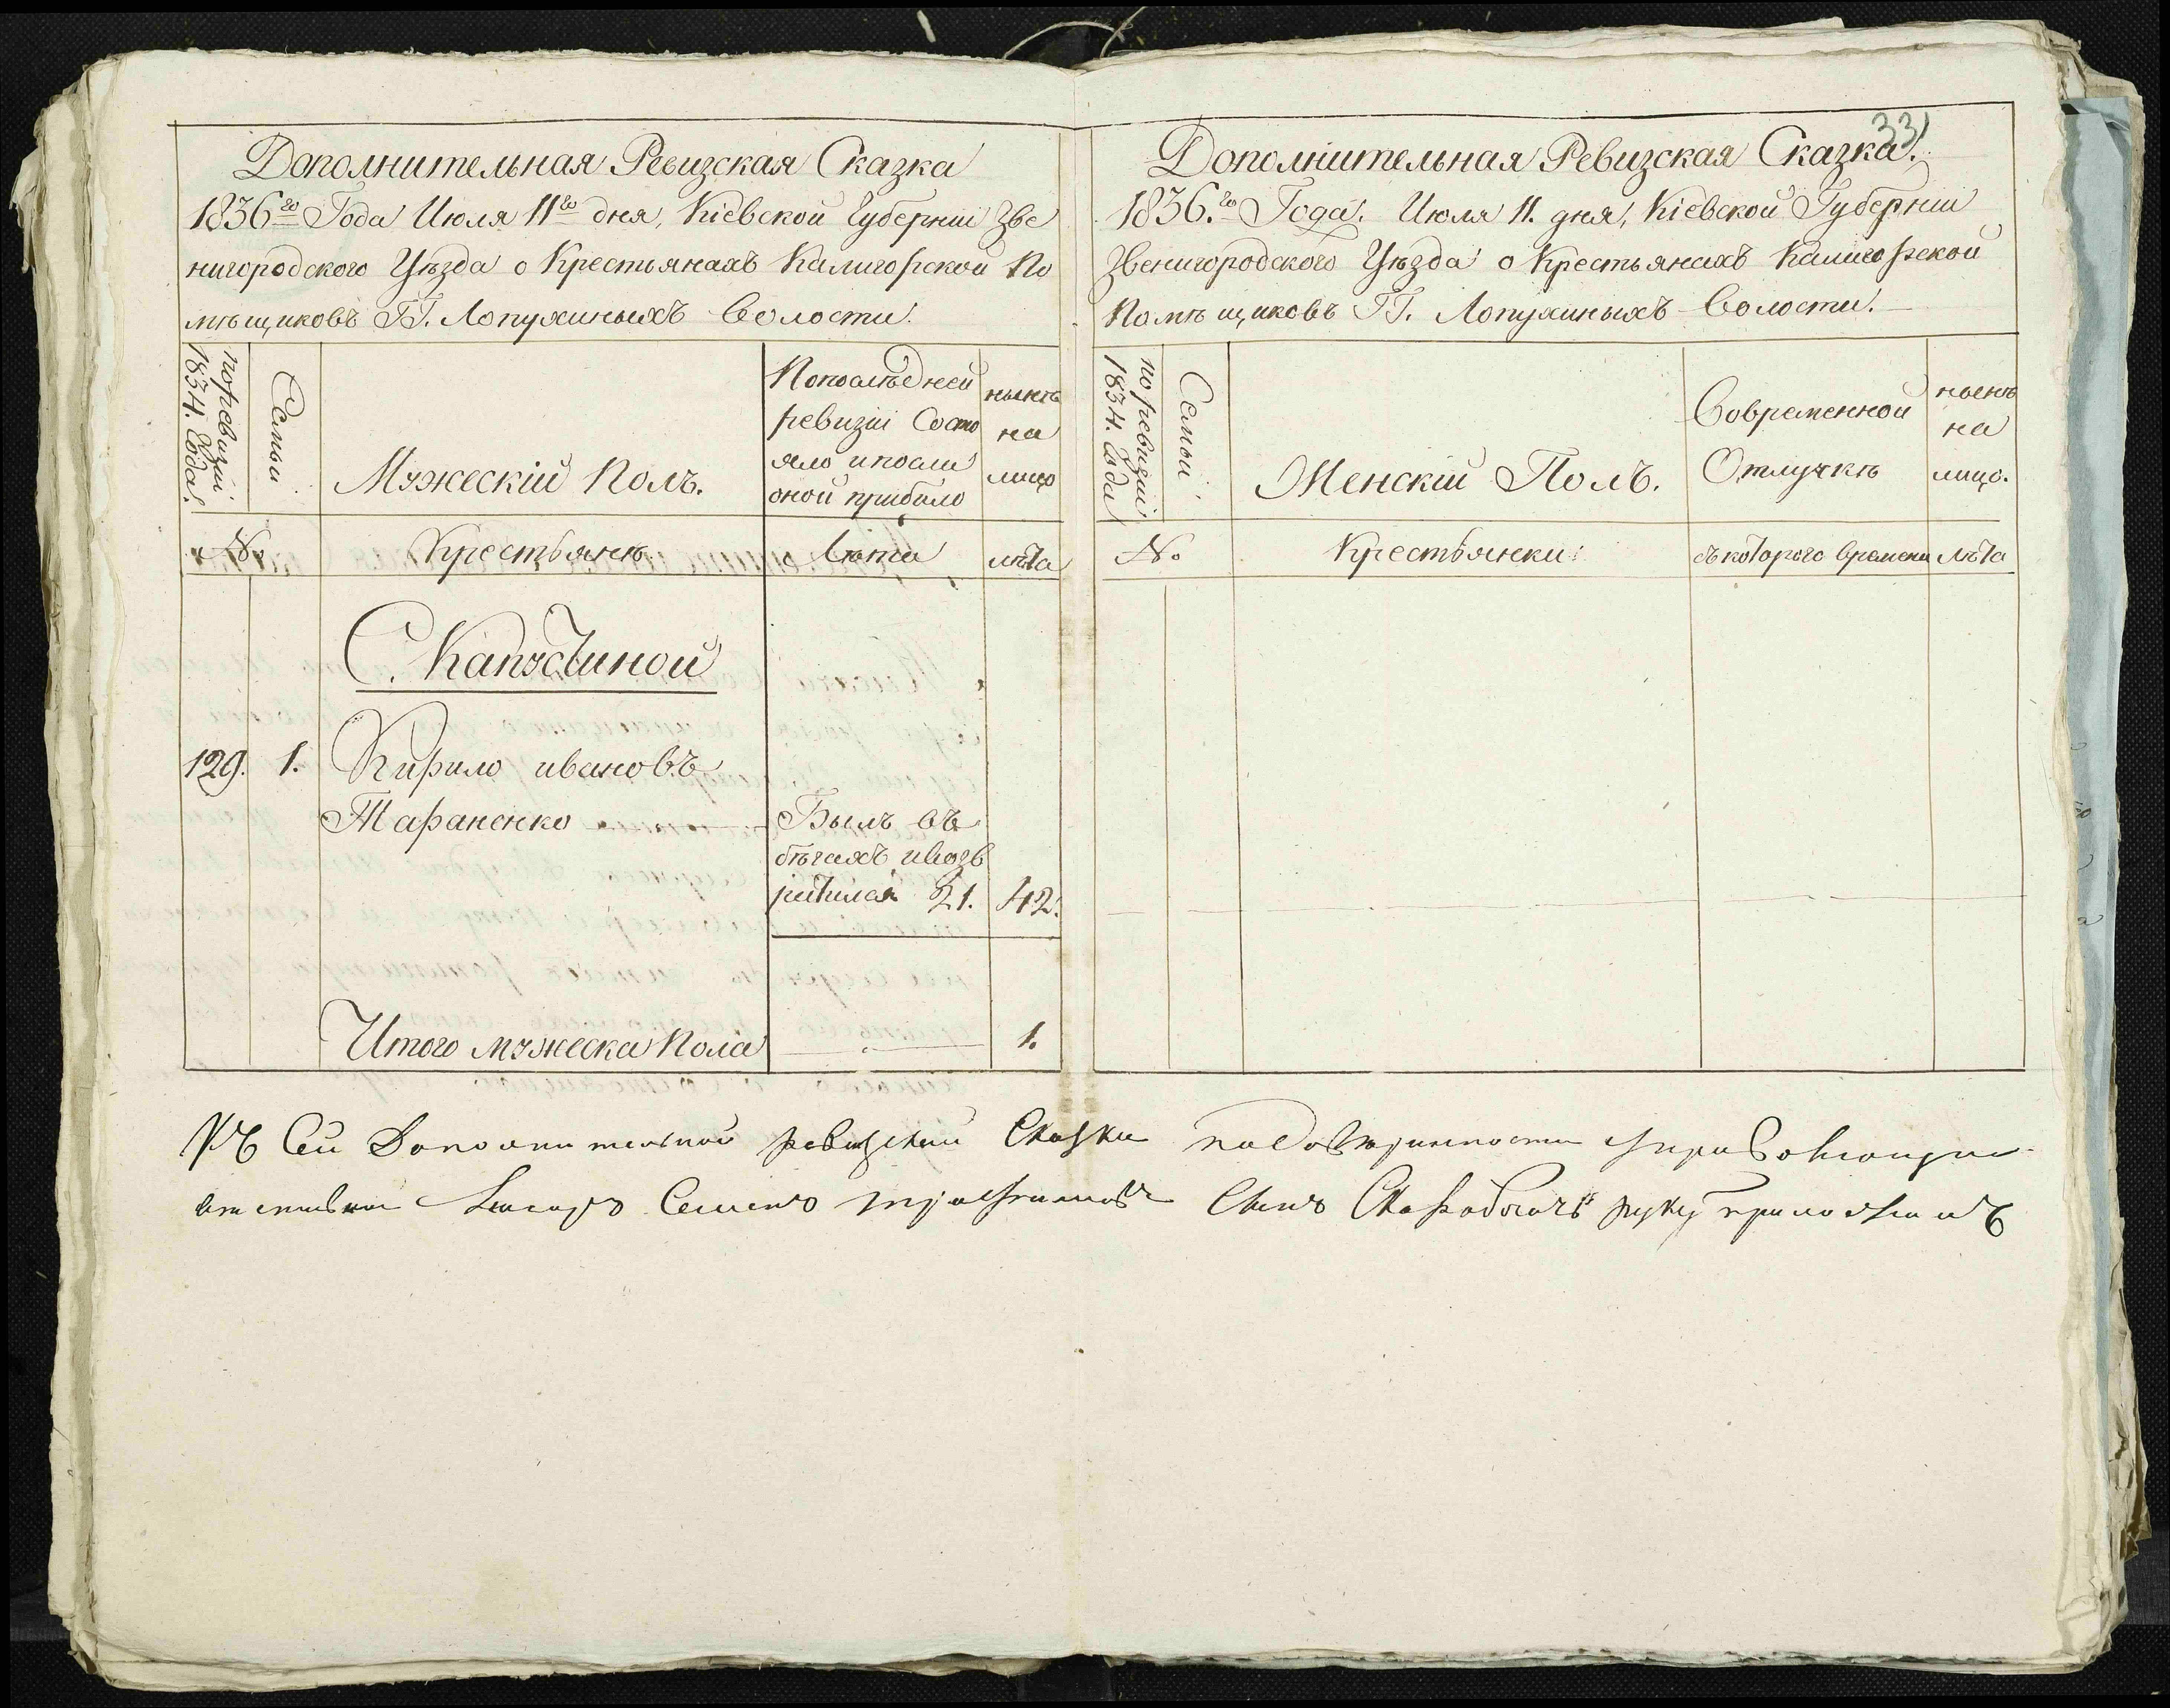 Дополнительная Ревизская Сказка
1836го Года Июля 11го дня, Кіевской Губерніи Зве
нигородского Уѣзда о Крестьянахъ Калигорской По
мѣщиковъ ГГ. Лопухиныхъ Волости.
по ревизіи 1834. Года.
Семьи
Мужескій Полъ.
Попослѣдней
ревизіи Состо
яло и посли
оной прибыло
нынѣ
на
лицо
№
Крестьяне
Лѣта
лѣта
С. Капустиной
129. 1. Кирило ивановъ
Тараненко
Былъ въ
бѣгахъ ивозв
ратился 21. 42.
Итого мужеска Пола 1.
33
Дополнительная Ревизская Сказка.
1836.го Года. Июля 11. дня, Кіевской Губерніи
Звенигородского Уѣзда о Крестьянахъ Калигорской
Помѣщиковъ ГГ. Лопухиныхъ Волости.
по ревизіи 1834. Года
Семьи
Женскій Полъ.
Вовременной
Отлучкѣ
нынѣ
на
лицо.
№
Крестьянки
съ которого Времени
лѣта
Къ Сей Дополнительной ревизской Сказки по довѣренности
Семенъ Сынъ руку приложилъ